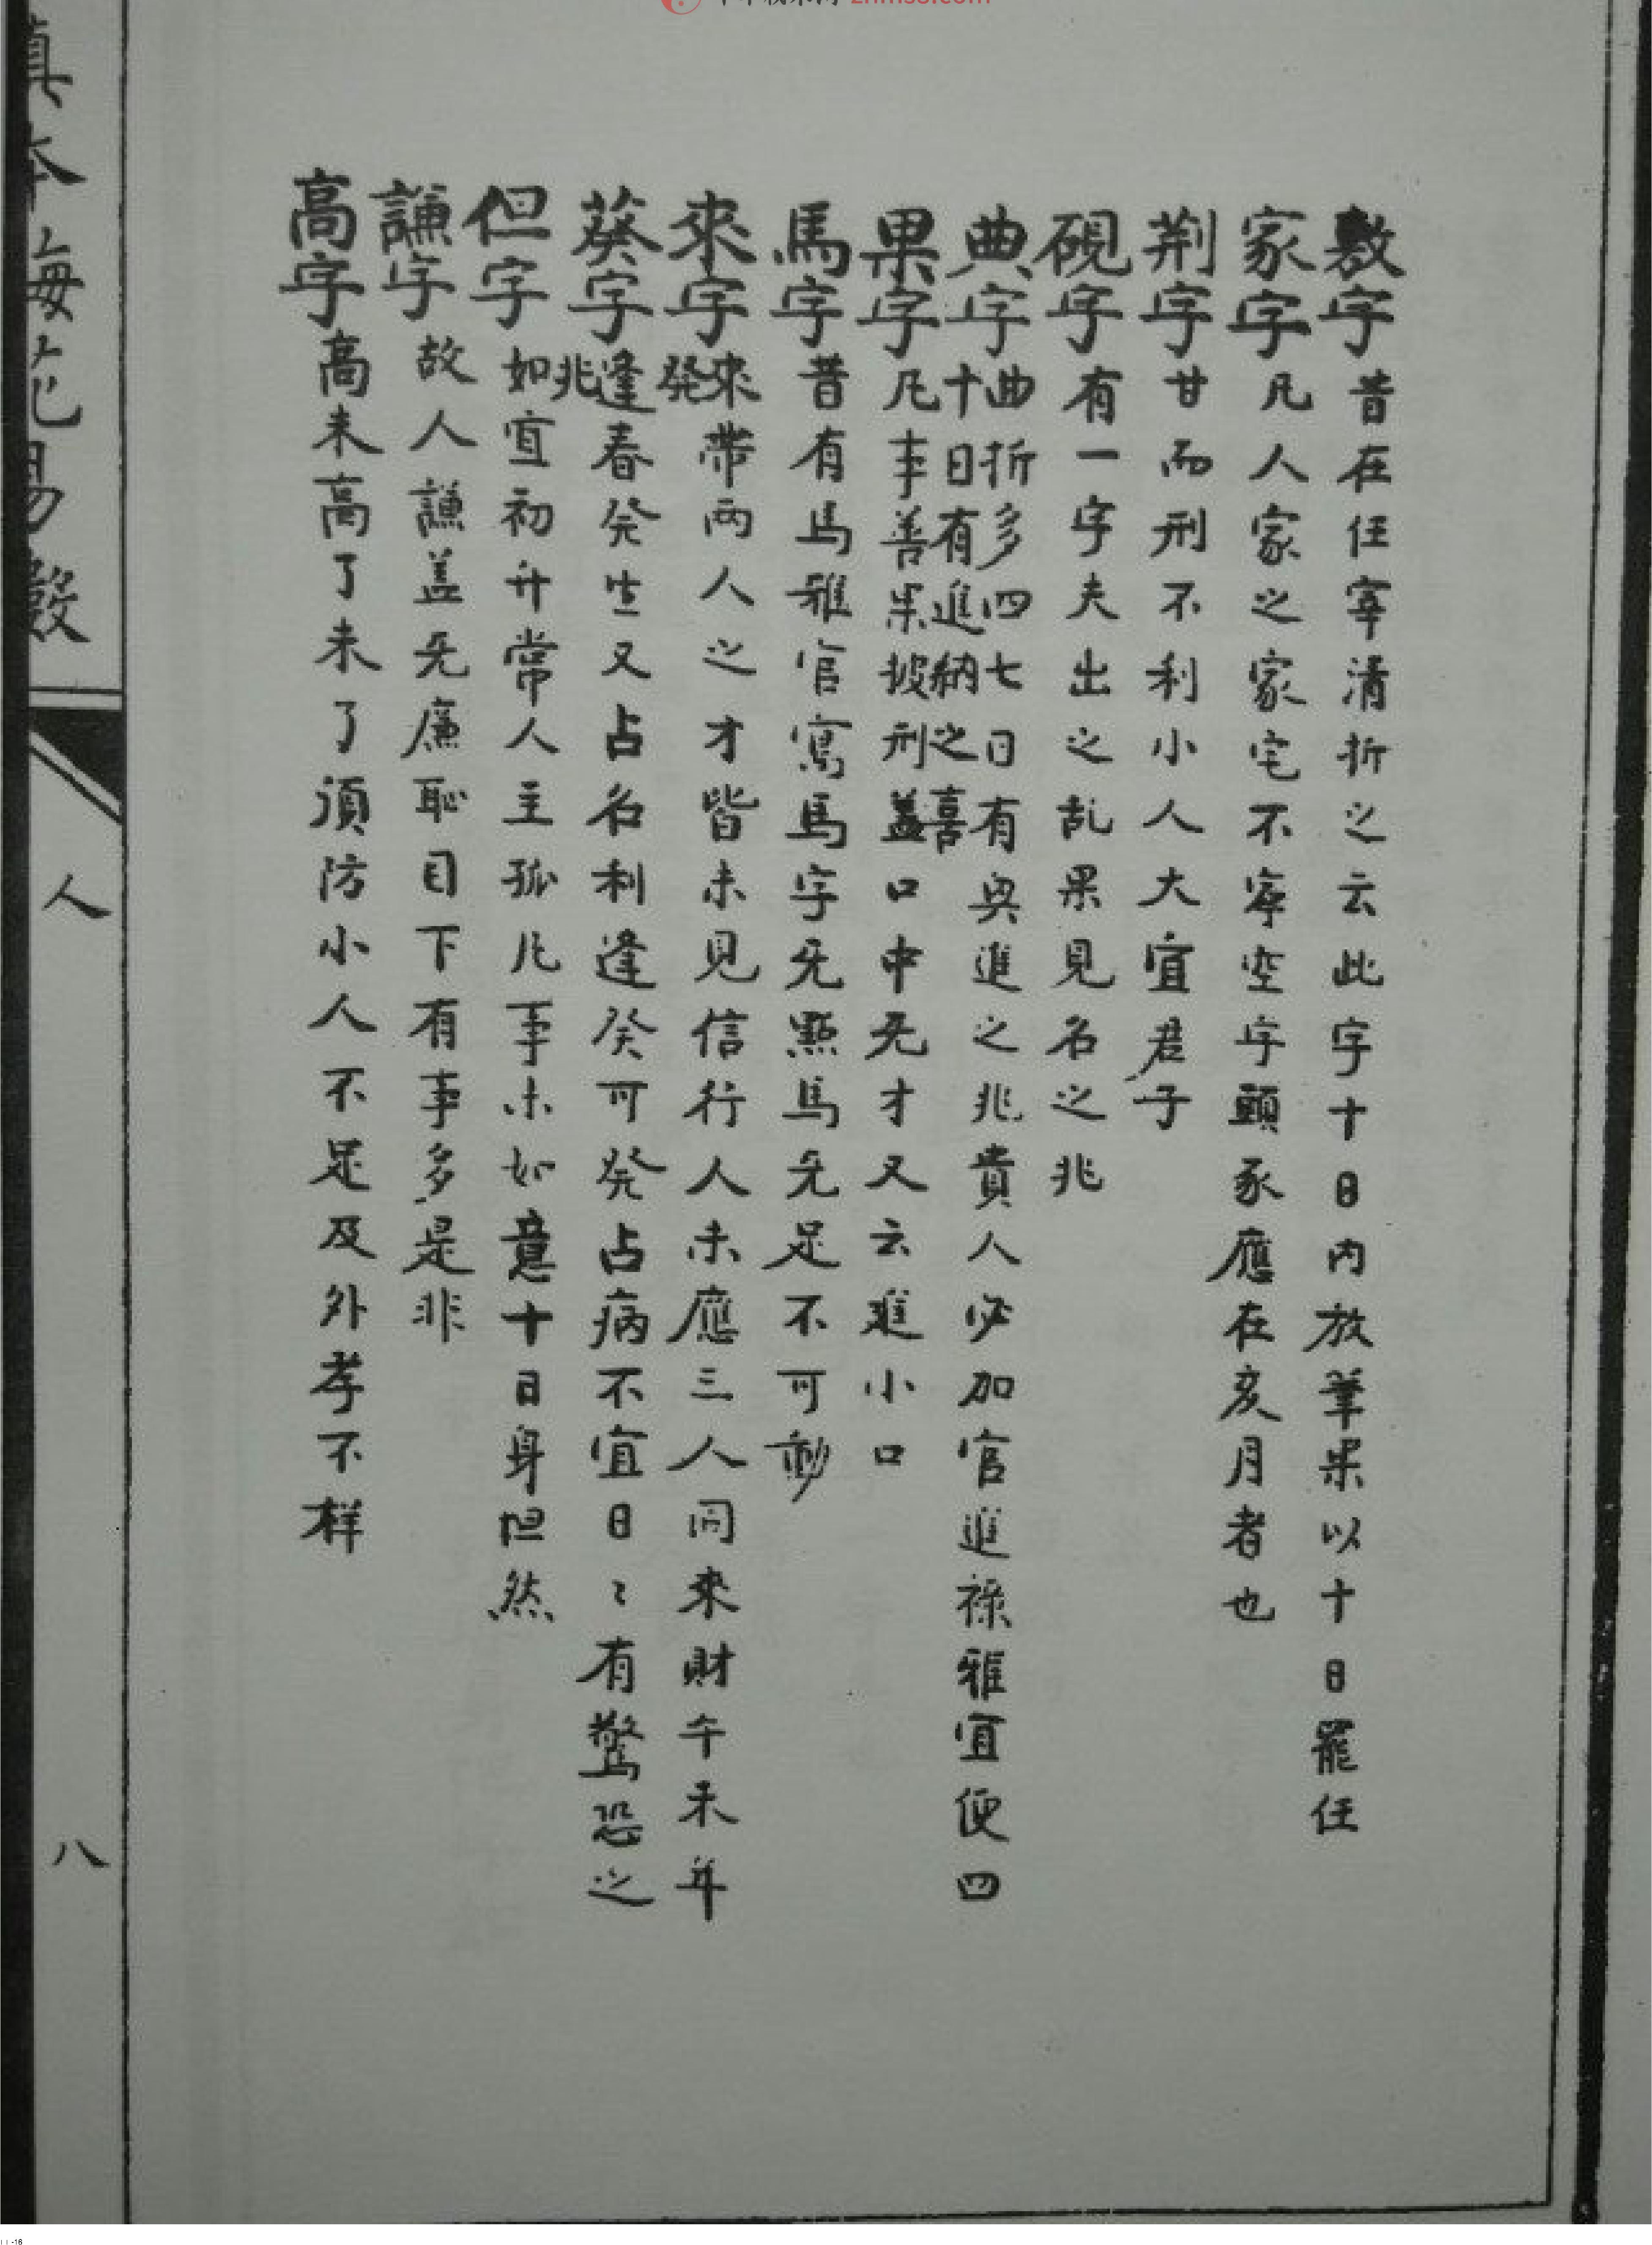 敷字昔在任宰清折之云此字十日内放筆果以十日罷任
家字凡人家之家宅不寧空字頭豕應在亥月者也
荆字甘而刑不利小人大宜君子
硯字有一字夫出之乱果見名之兆
典字曲折多四七日有與進之兆貴人必加官進祿雅宜便四
十日有進納之喜
果字凡事善果披刑蓋口中无才又云進小口
馬字昔有馬雅官寫馬字无點馬无足不可動
來字來帶兩人之才皆未見信行人未應三人同來財午未年
發
葵字逢春癸生又占名利逢癸可發占病不宜日〻有驚恐之
兆
但字如宜初升常人主孤凡事未如意十日身怛然
謙字故人謙蓋无廉恥目下有事多是非
高字高未高了未了須防小人不足及外孝不样
真本梅花易數
人
八
znms8.com
-16